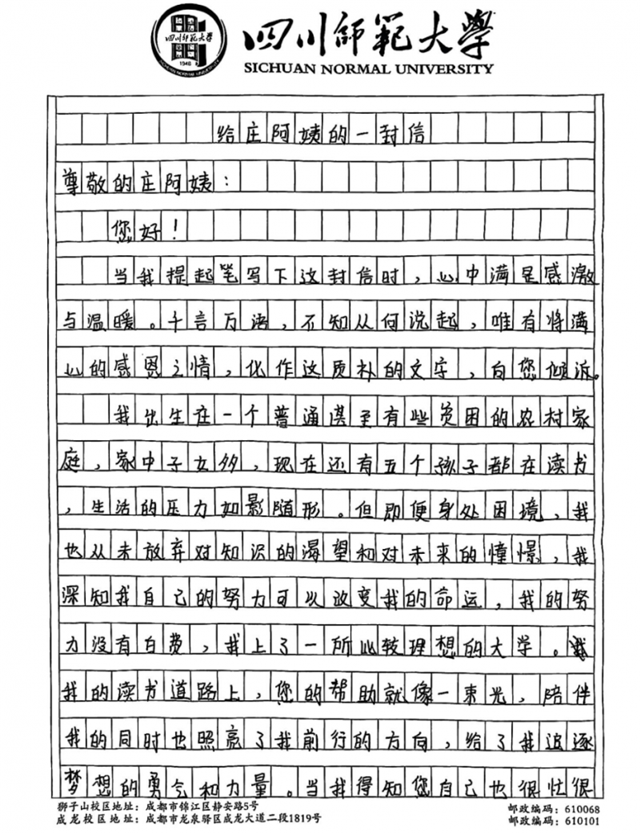 四川師範大學
四川师范大学
1946
SICHUAN NORMAL UNIVERSITY
给庄阿姨的一封信
尊敬的庄阿姨：
您好！
当我提起笔写下这封信时，心中满是感激
与温暖。千言万语，不知从何说起，唯有将满
心的感恩之情，化作这质朴的文字，向您倾诉。
我出生在一个普通甚至有些贫困的农村家
庭，家中子女多，现在还有五个孩子都在读书
，生活的压力如影随形。但即便身处困境，我
也从未放弃对知识的渴望和对未来的憧憬，我
深知我自己的努力可以改变我的命运，我的努
力没有白费，我上了一所比较理想的大学。
我的读书道路上，您的帮助就像一束光，陪伴
我的同时也照亮了我前行的方向，给了我追逐
梦想的勇气和力量。当我得知您自己也很忙很
狮子山校区地址：成都市锦江区静安路5号 邮政编码：610068
成龙校区地址：成都市龙泉驿区成龙大道二段1819号 邮政编码：610101